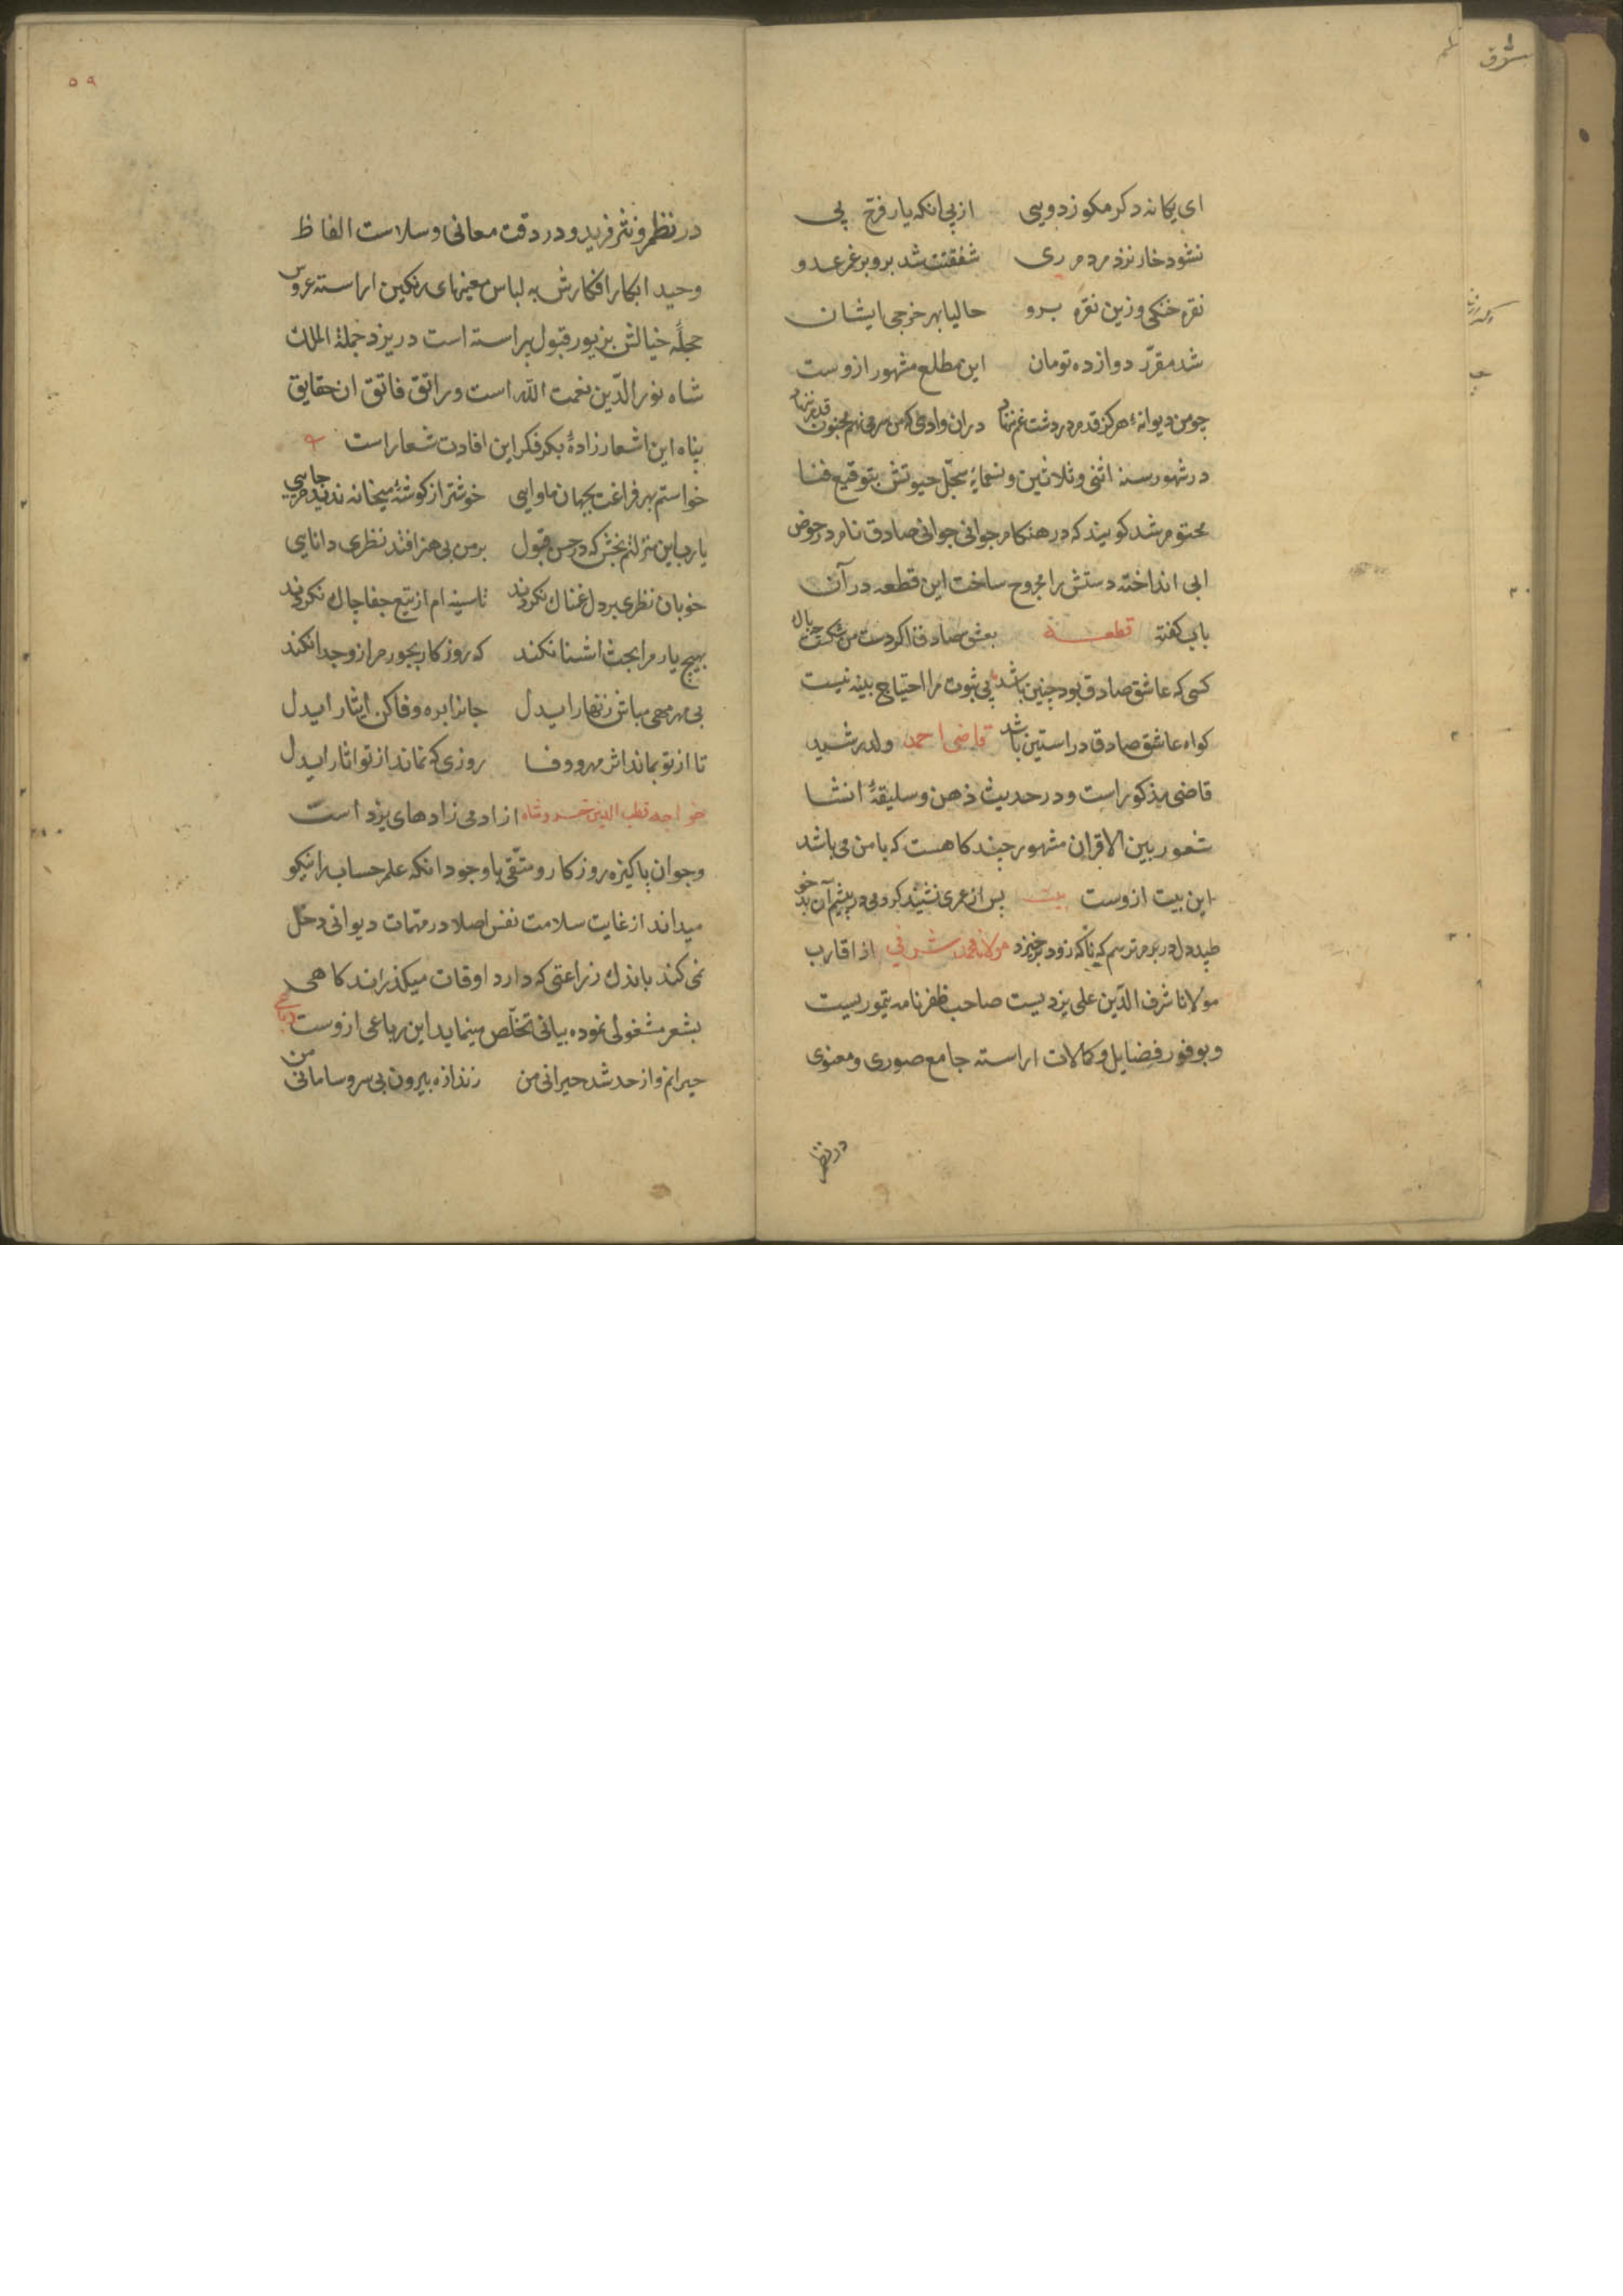 ای یکانه دکر مکو ز دویی از پی انکه یار فرخ پی
نشود خار نزد مردم ری شفقت شد برو برغم عدو
نقره خنکی و زین نقره برو حالیا بهر خرجی ایشان
شد مقرّر دوازده تومان این مطلع مشهور ازوست
چو من دیوانهٔ هرکز قدم در دشت غم ننهاد دران وادی که من سر می نهم مجنون قدم ننهاد
در شهور سنه اثنی و ثلاثین و تسعمایه سجل حیوتش بتوقیع فنا
مختوم شد کویند که در هنکام جوانی جوانی صادق نام در حوض
ابی انداخته دستش را مجروح ساخت این قطعه در آن
باب کفته قطعه بعشق صادقا کر دست من شکست
کسی که عاشق صادق بود چنین باشد پی ثبوت مرا احتیاج بینه نیست
کواه عاشق صادق در استین باشد قاضی احمد ولد رشید
قاضی مذکور است و در حدیث ذهن و سلیقهٔ انشا
شعور بین الاقران مشهور چند کاهست که با من می باشد
این بیت ازوست بیت پس از عمری نشیند کر دمی در پیشم آن بد خو
طپد دل در برم ترسم که ناکه زود برخیزد مولانا محمد شرفی از اقارب
مولانا شرف الدّین علی یزدیست صاحب ظفرنامه تیموریست
و بوفور فضایل و کمالات اراسته جامع صوری و معنوی
در نظم
۵۹
در نظم و نثر فرید و در دقت معانی و سلاست الفاظ
وحید ابکار افکارش به لباس معنیهای رنکین اراسته عروس
حجلهٔ خیالش بزیور قبول پیراسته است در یزد جملة الملک
شاه نور الدّین نعمت الله است و راتق فاتق ان حقایق
پناه این اشعار زادهٔ بکر فکر این افادت شعار است
خواستم بهر فراغت بجهان ماوایی خوشتر از کوشهٔ میخانه ندیدم جایی
یا رب این منزلتم بخش که در حسن قبول بر من بی هنر افتد نظری دانایی
خوبان نظری بر دل غمناک نکردند تا سینه ام از تیغ جفا چاک نکردند
بهیچ یار مرا بخت اشنا نکند که روزکار بجور مرا ازو جدا نکند
بی مهر مهی مباش زنهار ایدل جانرا بره وفا کن ایثار ایدل
تا از تو بماند اثر مهر و وفا روزی که نماند از تو اثار ایدل
خواجه قطب الدین خسروشاه از ادمی زادهای یزد است
و جوان پاکیزه روزکار و متّقی با وجود انکه علم حساب را نیکو
میداند از غایت سلامت نفس اصلا در مهمات دیوانی دخل
نمی کند باندک زراعتی که دارد اوقات میکذراند کاهی
بشعر مشغولی نموده بیانی تخلّص مینماید این رباعی ازوست رباعی
حیرانم و از حد شد حیرانی من زاندازه بیرون بی سر و سامانی من